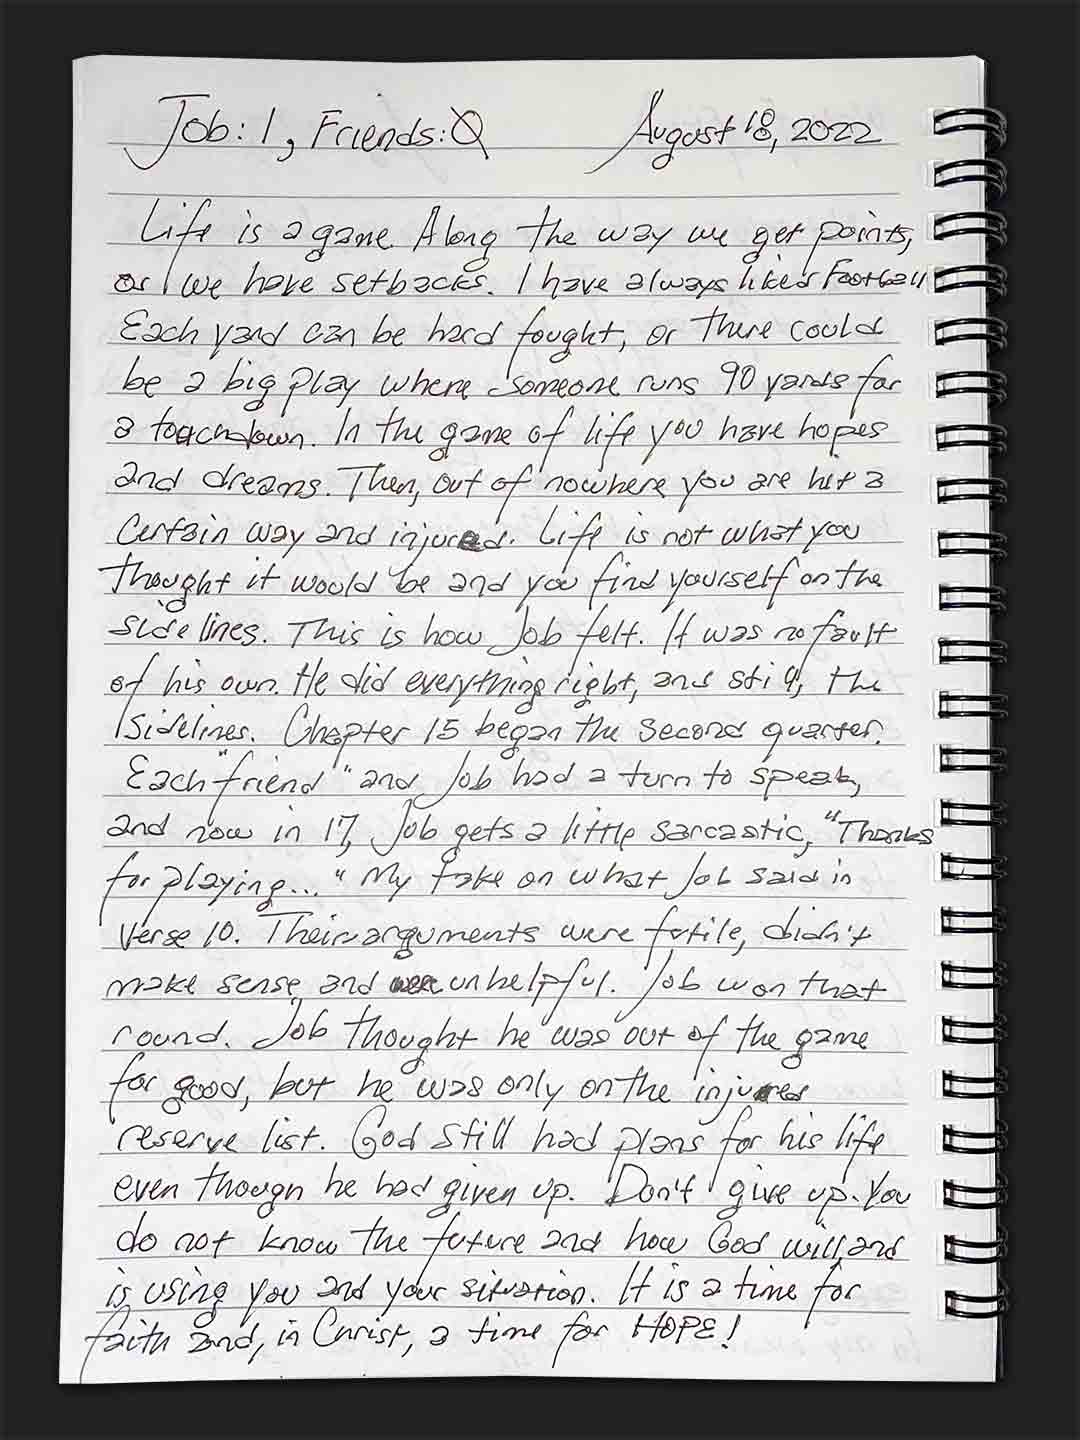 Job: 1, Friends: 0 August 18, 2022
Life is a game. Along the way we get points,
or we have setbacks. I have always liked Football
Each yard can be hard fought, or there could
be a big play where someone runs 90 yards for
a touchdown. In the game of life you have hopes
and dreams. Then, out of nowhere you are hit a
certain way and injured. Life is not what you
thought it would be and you find yourself on the
sidelines. This is how Job felt. It was no fault
of his own. He did everything right, and still, the
sidelines. Chapter 15 began the second quarter.
Each "friend" and Job had a turn to speak,
and now in 17, Job gets a little sarcastic, "Thanks
for playing..." My take on what Job said in
Verse 10. Their arguments were futile, didn't
make sense and were unhelpful. Job won that
round. Job thought he was out of the game
for good, but he was only on the injured
reserve list. God still had plans for his life
even though he had given up. Don't give up. You
do not know the future and how God will, and
is using you and your situation. It is a time for
faith and, in Christ, a time for HOPE!